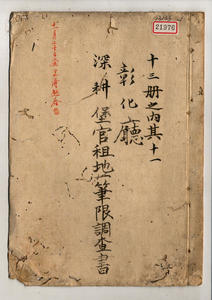 21976
十三册之內其十一
彰化廳
深耕堡官租地一筆限調查書